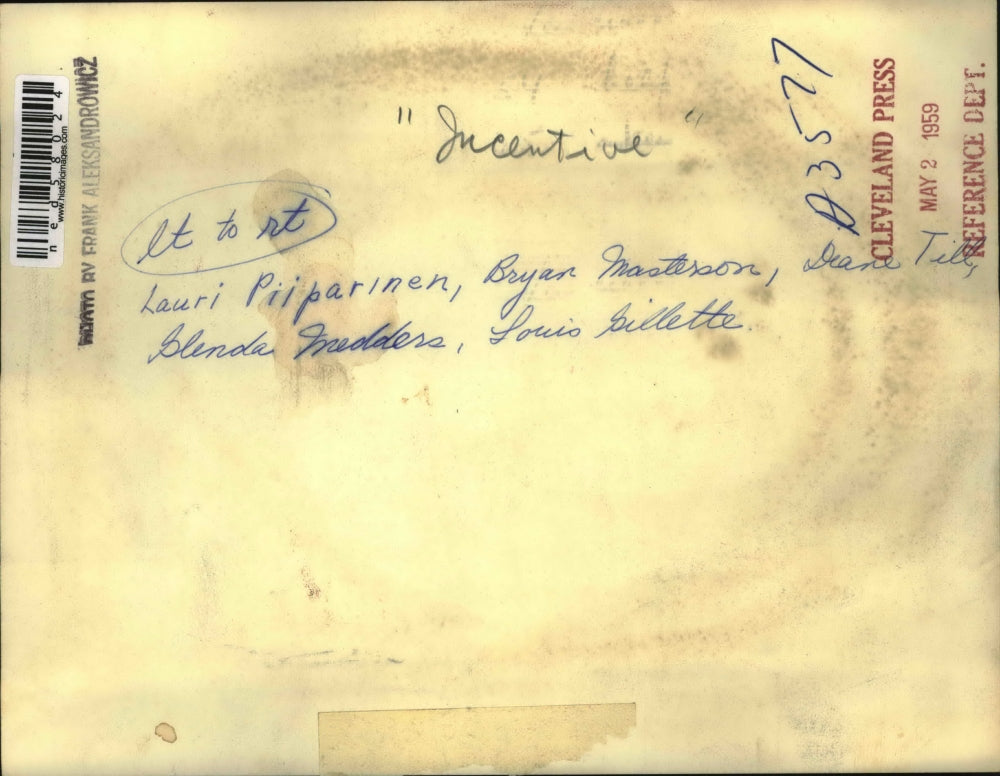 " Incentive "
lt to rt
Lauri Piiparinen, Bryan Masterson, Diane Till,
Glenda Medders, Louis Gillette.
A3577
CLEVELAND PRESS
MAY 2 1959
REFERENCE DEPT.
PHOTO BY FRANK ALEKSANDROWICZ
www.historicimages.com
ned58024